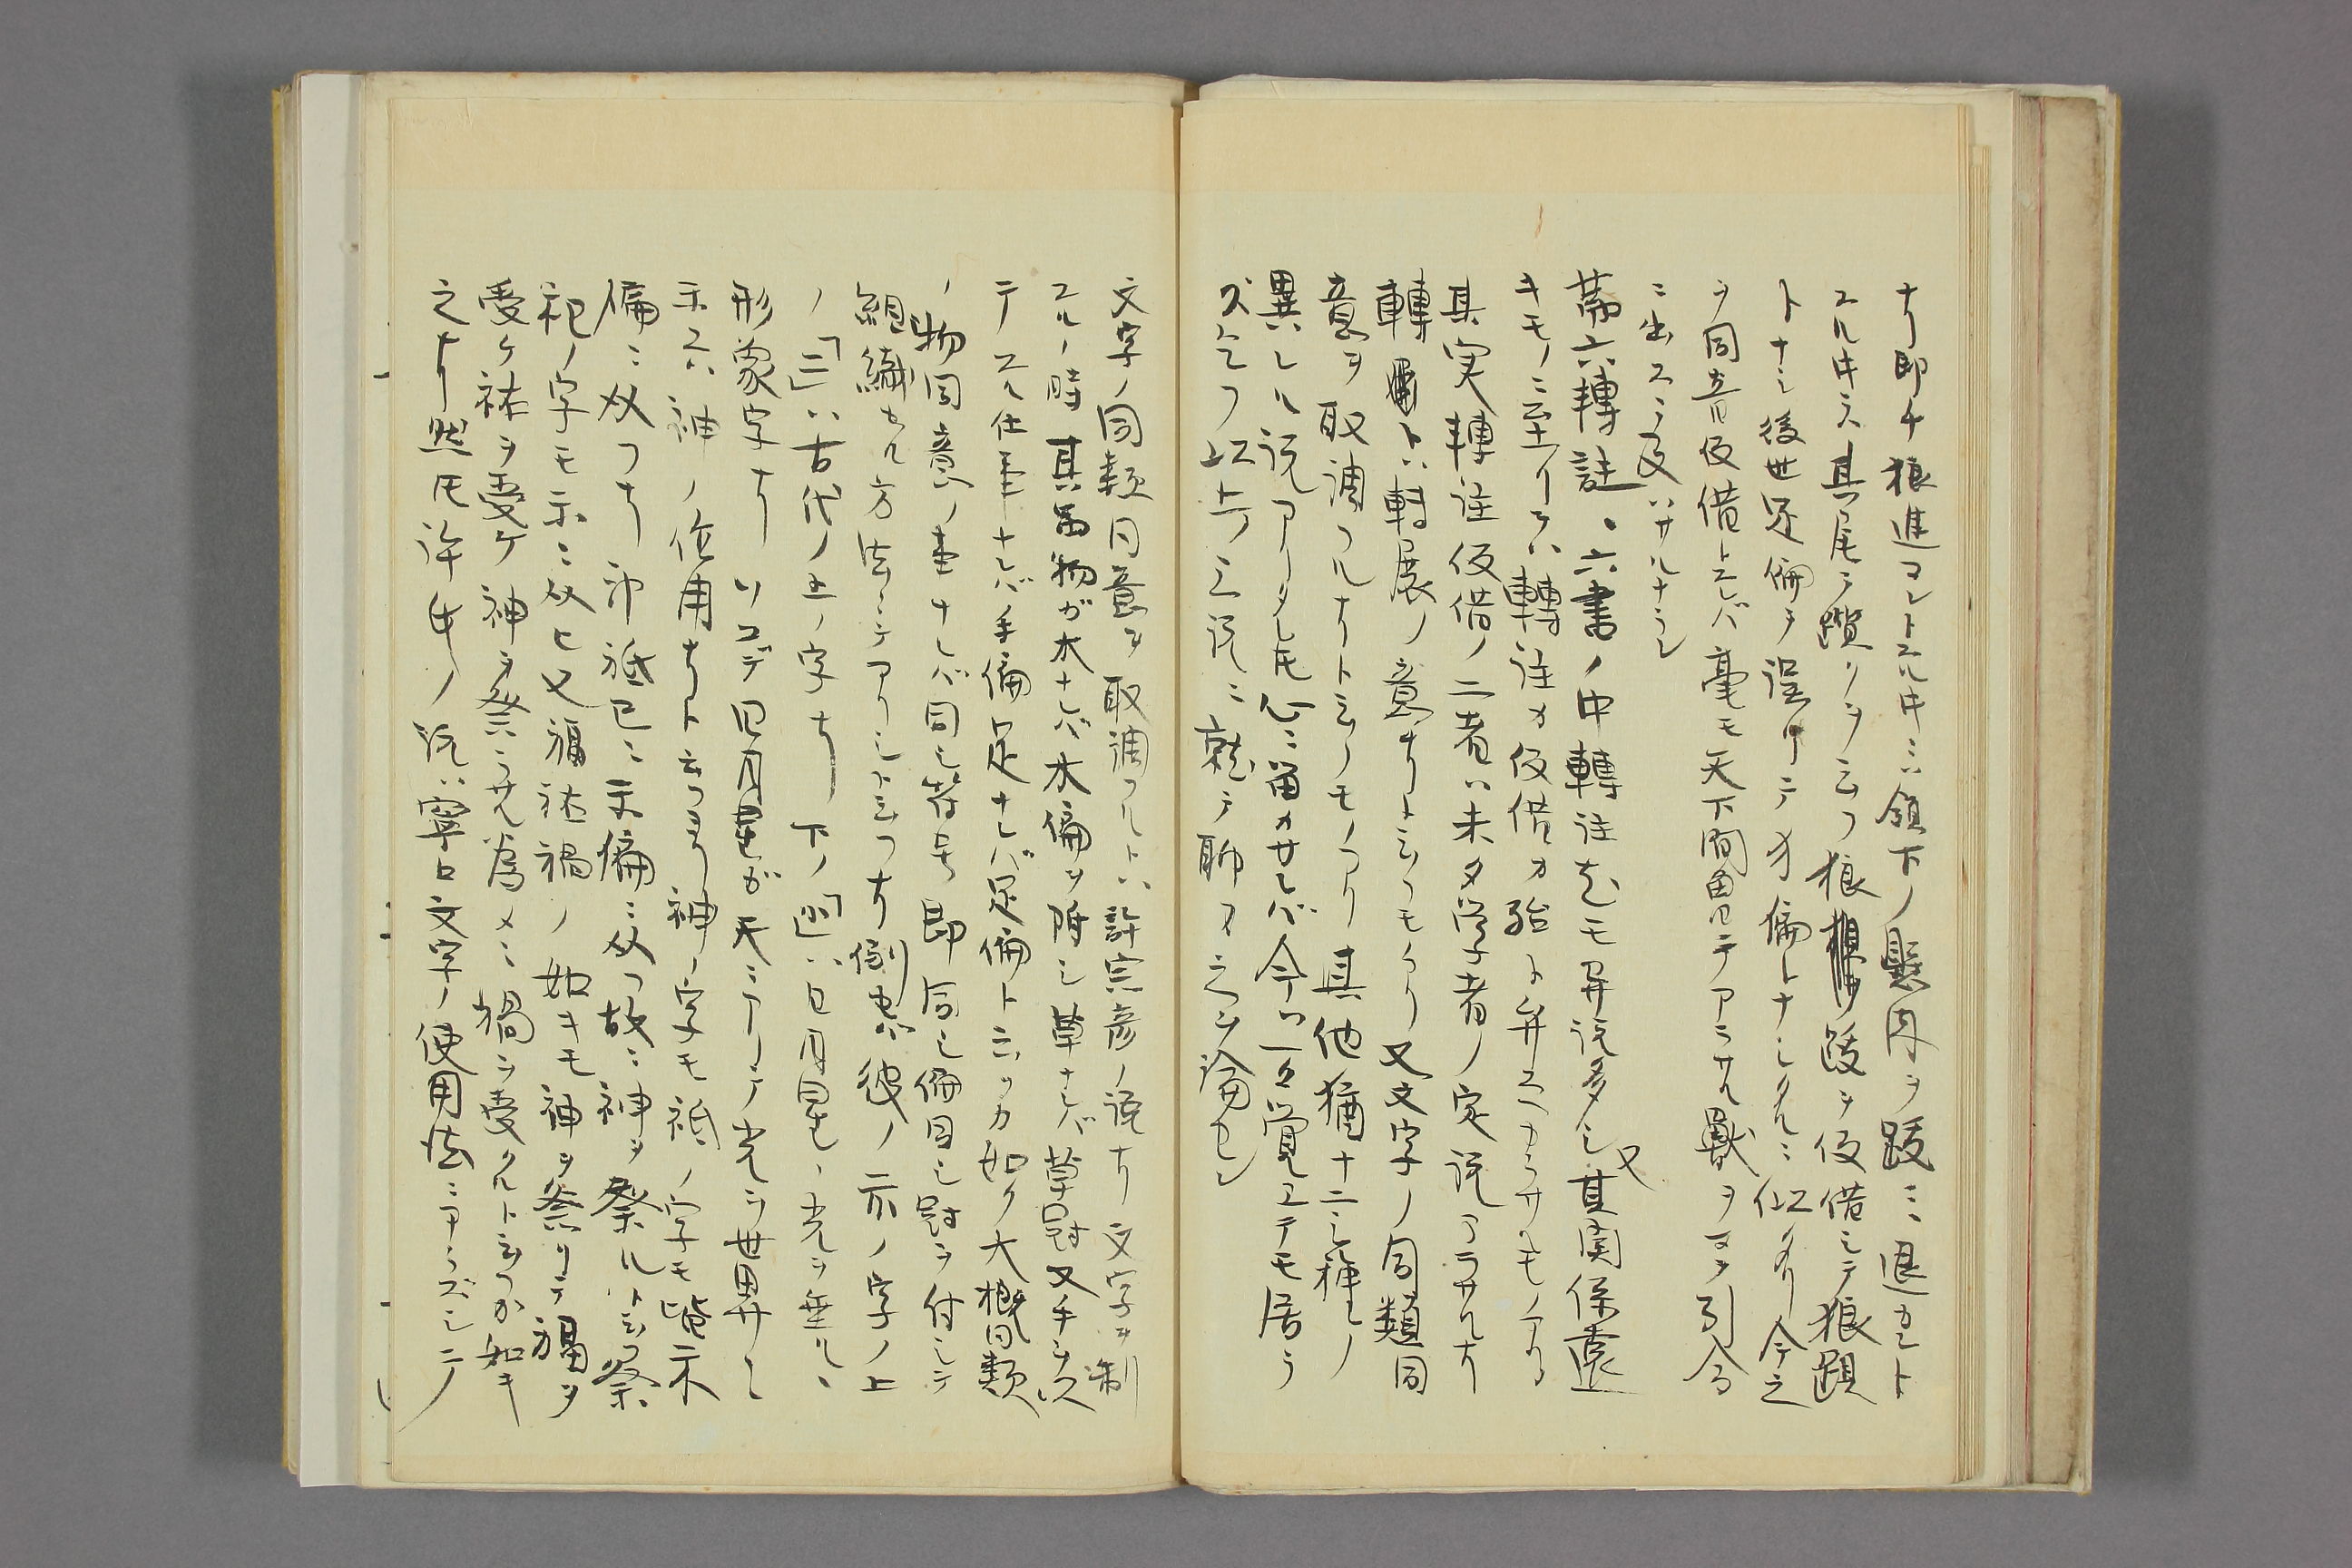 ナリ即チ狼進マントスル時ニハ領下ノ懸肉ヲ跋ミ退カント
スル時ハ其尾ヲ躓クヲ云フ狼狽ノ跋ヲ仮借シテ狼跟
トナシ後世足偏ヲ誤リテ犭偏トナシタルニ似タリ今之
ヲ同音仮借トスレバ毫モ天下間ニアラサル獣ヲマテ引合
ニ出スニ及ハサルナラン
第六轉註、六書ノ中轉注尤モ異説多シ又其関係遠
キモノニ至リテハ轉注カ仮借カ殆ト弁スヘカラサルモノアリ
其実轉注仮借ノ二者ハ未タ学者ノ定説アラサルナリ
轉トハ轉展ノ意ナリト云フモアリ又文字ノ同類同
意ヲ取調フルナリト云フモノアリ其他猶十二三種ノ
異レル説アリタレ𪜈心ニ留メサレバ今ハ一々覚ヱテモ居ラ
ズ乞フ以上ノ三説ニ就テ聊カ之ヲ論セン
文字ノ同類同意ヲ取調フルトハ許宗彦ノ説ナリ文字ヲ制
スルノ時其留物ガ木ナレバ木偏ヲ附シ草ナレバ草冠又手ヲ以
テスル仕事ナレバ手偏足ナレバ足偏ト云フカ如ク大概同類
ノ物同意ノ事ナレバ同シ符号即同シ偏同シ冠ヲ付シテ
組織セル方法ニテアリシト云フナリ例セバ彼ノ示ノ字ノ上
ノ「二」ハ古代ノ上ノ字ナリ下ノ「小」ハ日月星ノ光ヲ垂ルヽ
形象字ナリソコデ日月星ガ天ニアリテ光ヲ世界ニ
示スハ神ノ作用ナリト云フヨリ神ノ字モ祇ノ字モ皆示
偏ニ从フナリ神祇已ニ示偏ニ从フ故ニ神ヲ祭ルト云フ祭
祀ノ字モ示ニ从ヒ又福祐禍ノ如キモ神ヲ祭リテ福ヲ
受ケ祐ヲ受ケ神ヲ祭ラサル為メニ禍ヲ受クルト云フカ如キ
之ナリ然𪜈許氏ノ説ハ寧ロ文字ノ使用法ニアラズシテ